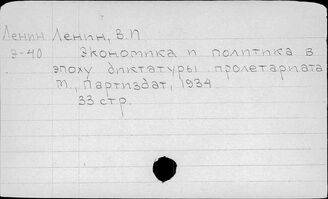 Ленин Ленин, В.И
Э-40 Экономика и политика в
эпоху диктатуры пролетариата
М., Партиздат, 1934
33 стр.